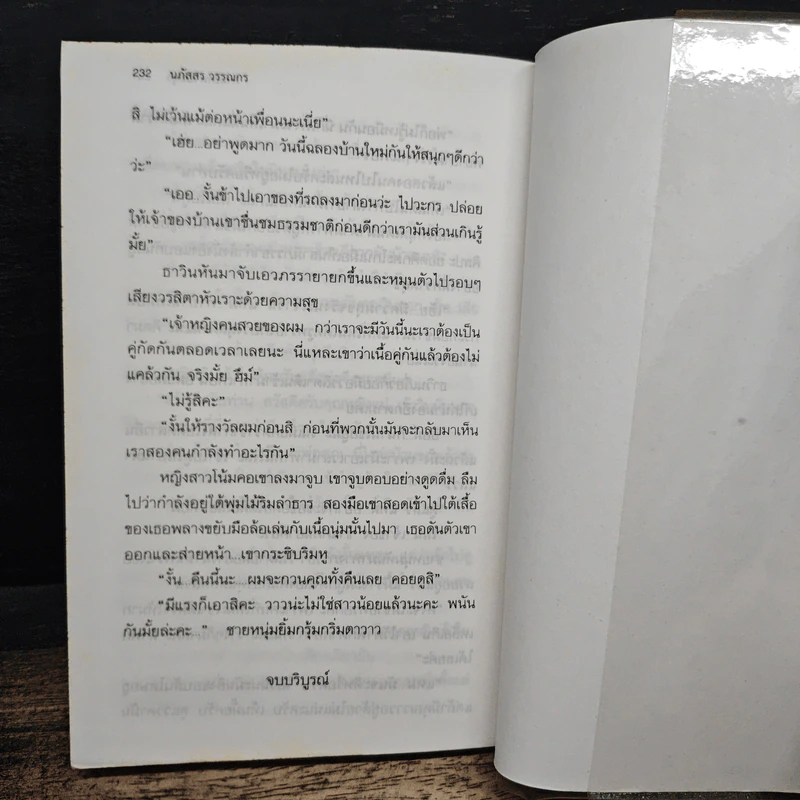 232 นภัสสร วรรณกร
สิ ไม่เว้นแม้ต่อหน้าเพื่อนนะเนี่ย”
“เฮ่ย...อย่าพูดมาก วันนี้ฉลองบ้านใหม่กันให้สนุกๆดีกว่า
ว่ะ”
“เออ งั้นข้าไปเอาของที่รถลงมาก่อนว่ะ ไปวะกร ปล่อย
ให้เจ้าของบ้านเขาชื่นชมธรรมชาติก่อนดีกว่าเรามันส่วนเกินรู้
มั้ย”
ธาวินหันมาจับเอวภรรยายกขึ้นและหมุนตัวไปรอบๆ
เสียงวรสิตาหัวเราะด้วยความสุข
“เจ้าหญิงคนสวยของผม กว่าเราจะมีวันนี้นะเราต้องเป็น
คู่กัดกันตลอดเวลาเลยนะ นี่แหละเขาว่าเนื้อคู่กันแล้วต้องไม่
แคล้วกัน จริงมั้ย ฮึม์”
“ไม่รู้สิคะ”
“งั้นให้รางวัลผมก่อนสิ ก่อนที่พวกนั้นมันจะกลับมาเห็น
เราสองคนกำลังทำอะไรกัน”
หญิงสาวโน้มคอเขาลงมาจูบ เขาจูบตอบอย่างดูดดื่ม ลืม
ไปว่ากำลังอยู่ใต้พุ่มไม้ริมลำธาร สองมือเขาสอดเข้าไปใต้เสื้อ
ของเธอพลางขยับมือล้อเล่นกับเนื้อนุ่มนั้นไปมา เธอดันตัวเขา
ออกและส่ายหน้า...เขากระซิบริมหู
“งั้น คืนนี้นะ ผมจะกวนคุณทั้งคืนเลย คอยดูสิ”
“มีแรงก็เอาสิคะ วาวน่ะไม่ใช่สาวน้อยแล้วนะคะ พนัน
กันมั้ยล่ะคะ...” ชายหนุ่มยิ้มกรุ้มกริ่มตาวาว
จบบริบูรณ์